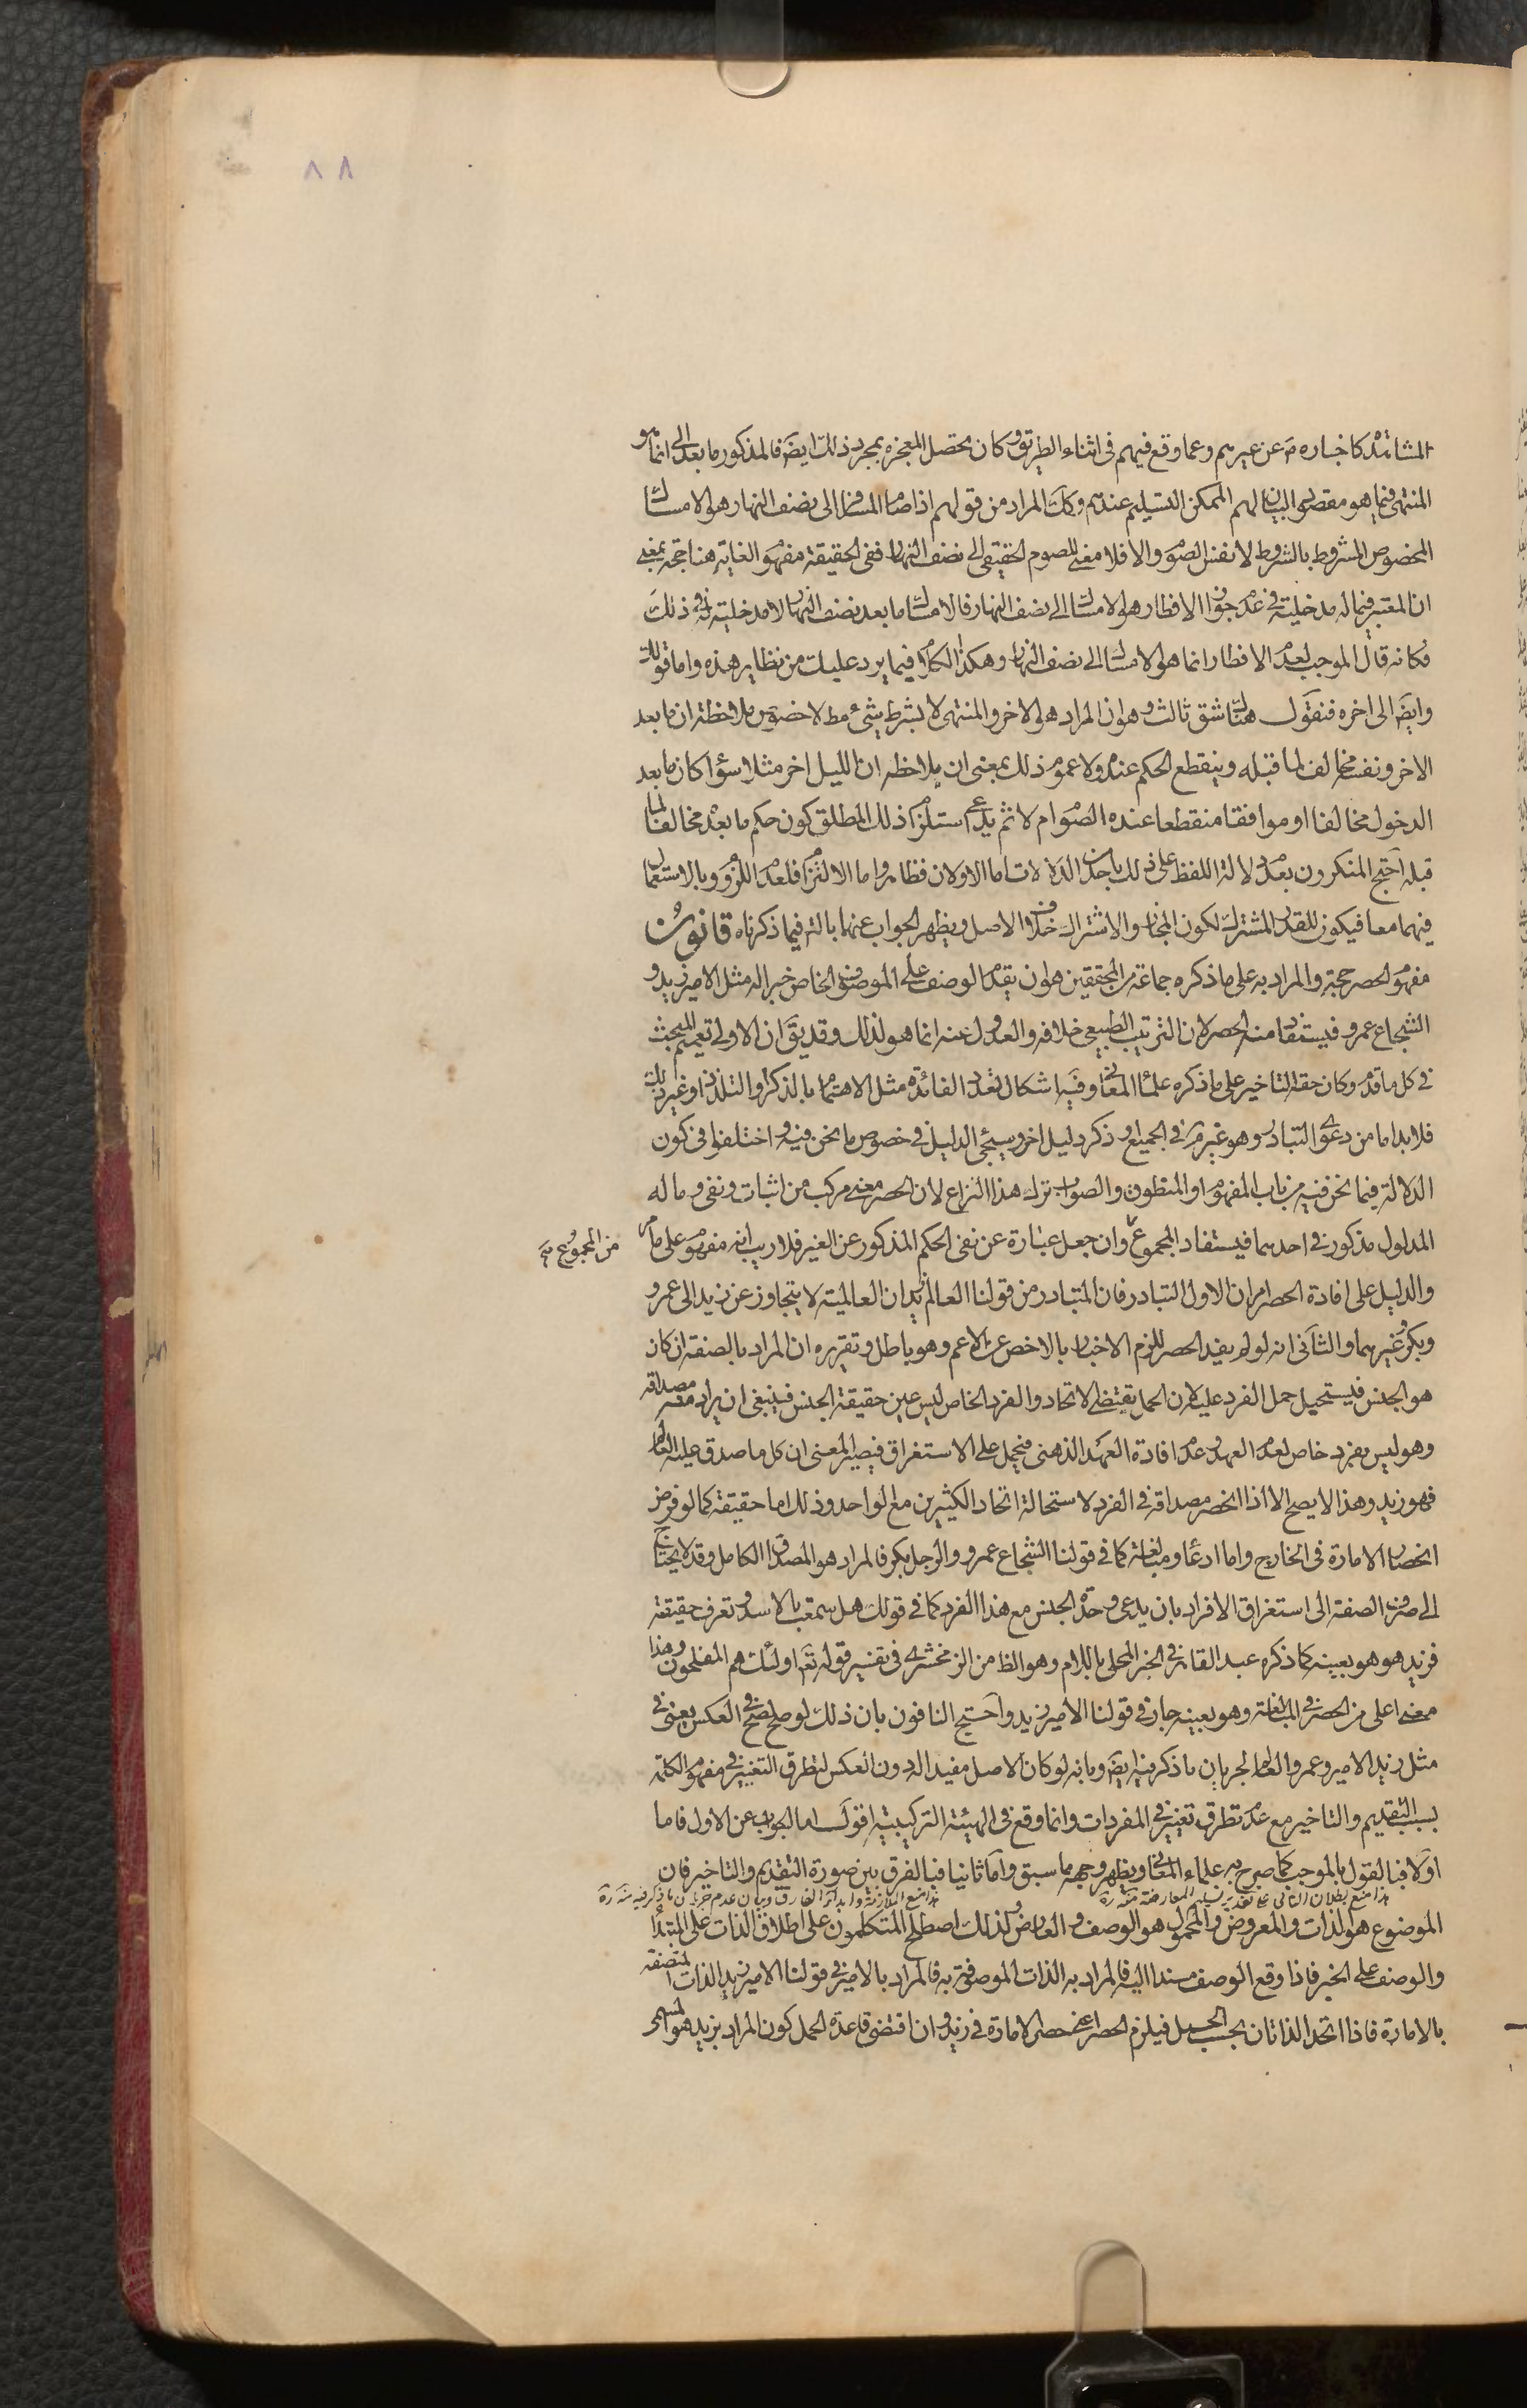 ٨٨
المشاهدة كاخباره ص عن عيرهم وعما وقع فيهم فى اثناء الطريق وكان يحصل المعجزة بمجرد ذلك ايضا فالمذكور ما بعد الى انما هو
المنتهى فيما هو مقصود البيان لهم الممكن التسليم عندهم وكك المراد من قولهم اذا صام المسافر الى نصف النهار هو الامساك
المخصوص المشروط بالشروط لا نفس الصوم والا فلا معنى للصوم الحقيقى الى نصف النهار ففى الحقيقة مفهوم الغاية هنا حجة بمعنى
ان المعتبر فيما له مدخلية فى عدم جواز الافطار هو الامساك الى نصف النهار فالامساك ما بعد نصف النهار لا مدخلية له فى ذلك
فكانه قال الموجب لعدم الافطار انما هو الامساك الى نصف النهار وهكذا الكلام فيما يرد عليك من نظاير هذه واما قولك
وايضا الى اخره فنقول هناك شق ثالث وهو ان المراد هو الاخر والمنتهى لا بشرط شئ مط لا خصوص ملاحظة ان ما بعد
الاخر ونفسه مخالف لما قبله وينقطع الحكم عنده ولا عموم ذلك بمعنى ان يلاحظ ان الليل اخر مثلا سواء كان ما بعد
الدخول مخالفا او موافقا منقطعا عنده الصوم ام لا ثم يدعى استلزام ذلك المطلق كون حكم ما بعد مخالفا لما
قبله احتج المنكرون بعدم دلالة اللفظ على ذلك باحدى الدلالات اما الاولان فظاهر واما الالتزام فلعدم اللزوم وبالاستعمال
فيهما معا فيكون للقدر المشترك لكون المجاز والاشتراك خلاف الاصل ويظهر الجواب عنهما بالتم فيما ذكرناه قانون
مفهوم الحصر حجة والمراد به على ما ذكره جماعة من المحققين هو ان يقدم الوصف على الموصوف الخاص خبرا له مثل الامير زيد و
الشجاع عمرو فيستفاد منه الحصر لان الترتيب الطبيعى خلافه والعدول عنه انما هو لذلك وقد يق ان الاولى تعميم المبحث
فى كل ما قدم وكان حقه التاخير على ما ذكره علماء المعانى وفيه اشكال لتعدد الفائدة مثل الاهتمام بالذكر او التلذذ او غير ذلك
فلا بد اما من دعوى التبادر وهو غير مط فى الجميع او ذكر دليل اخر وسيجئ الدليل فى خصوص ما نحن فيه و اختلفوا فى كون
الدلالة فيما نحن فيه من باب المفهوم او المنطوق والصواب ترك هذا النزاع لان الحصر معنى مركب من اثبات ونفى وما له
المدلول مذكور فى احدهما فيستفاد المجموع وان جعل عبارة عن نفى الحكم المذكور عن الغير فلا ريب انه مفهوم على ما مر
من المجموع
والدليل على افادة الحصر امران الاول التبادر فان المتبادر من قولنا العالم زيد ان العالمية لا يتجاوز عن زيد الى عمرو
وبكر وغيرهما والثانى انه لو لم يفد الحصر للزم الاخبار بالاخص عن الاعم وهو باطل وتقريره ان المراد بالصفة ان كان
هو الجنس فيستحيل حمل الفرد عليه لان الحمل يقتضى الاتحاد والفرد الخاص ليس عين حقيقة الجنس فينبغى ان يراد منه مصداقه
وهو ليس بفرد خاص لعدم العهد وعدم افادة العهد الذهنى فيحمل على الاستغراق فيصير المعنى ان كل ما صدق عليه العالم
فهو زيد وهذا لا يصح الا اذا انحصر مصداقه فى الفرد لاستحالة اتحاد الكثيرين مع الواحد وذلك اما حقيقة كما لو فرض
انحصار الامارة فى الخارج واما ادعاء ومبالغة كما فى قولنا الشجاع عمرو والرجل بكر فالمراد هو المصداق الكامل وقد لا يحتاج
الى صرف الصفة الى استغراق الافراد بان يدعى وحدة الجنس مع هذا الفرد كما فى قولك هل سمعت بالاسد وتعرف حقيقته
فزيد هو هو بعينه كما ذكره عبد القاهر فى الخبر المحلى باللام وهو الظ من الزمخشرى فى تفسير قوله تعم اولئك هم المفلحون وهذا
معنى اعلى من الحصر فى المبالغة وهو بعينه جار فى قولنا الامير زيد واحتج النافون بان ذلك لو صلح لصح فى العكس يعنى فى
مثل زيد الامير وعمرو العالم لجريان ما ذكر فيه ايض وبانه لو كان الاصل مفيدا له دون العكس لتطرق التغيير فى مفهوم الكلمة
بسبب التقديم والتاخير مع عدم تطرق تغيير فى المفردات وانما وقع فى الهيئة التركيبية اقول اما الجواب عن الاول فاما
اولا فبالقول بالموجب كما صرح به علماء المعانى ويظهر وجهه مما سبق واما ثانيا فبالفرق بين صورة التقديم والتاخير فان
هذا منع بطلان التالى على تقدير تسليم المعارضة
هذا منع الملازمة وابداء الفارق وبيان عدم جريان ما ذكر فيه
الموضوع هو الذات والمعروض والمحمول هو الوصف والعارض ولذلك اصطلح المتكلمون على اطلاق الذات على المبتدأ
والوصف على الخبر فاذا وقع الوصف مسندا اليه فالمراد به الذات الموصوفة به فالمراد بالامير فى قولنا الامير زيد الذات المتصفة
بالامارة فاذا اتحد الذاتان بحسب الحمل فيلزم الحصر اعنى حصر الامارة فى زيد و ان اقتضى قاعدة الحمل كون المراد بزيد هو المسمى